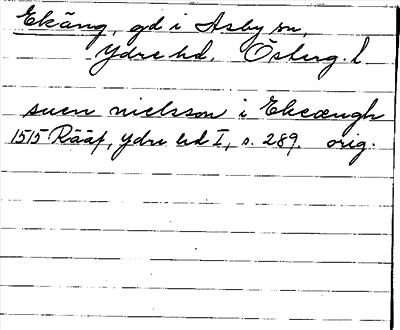 Ekäng, gd i Asby sn,
Ydre hd. Österg. l.
suen nielsson i Ekeængh
1515 Rääf, Ydre hd I, s. 289. orig.